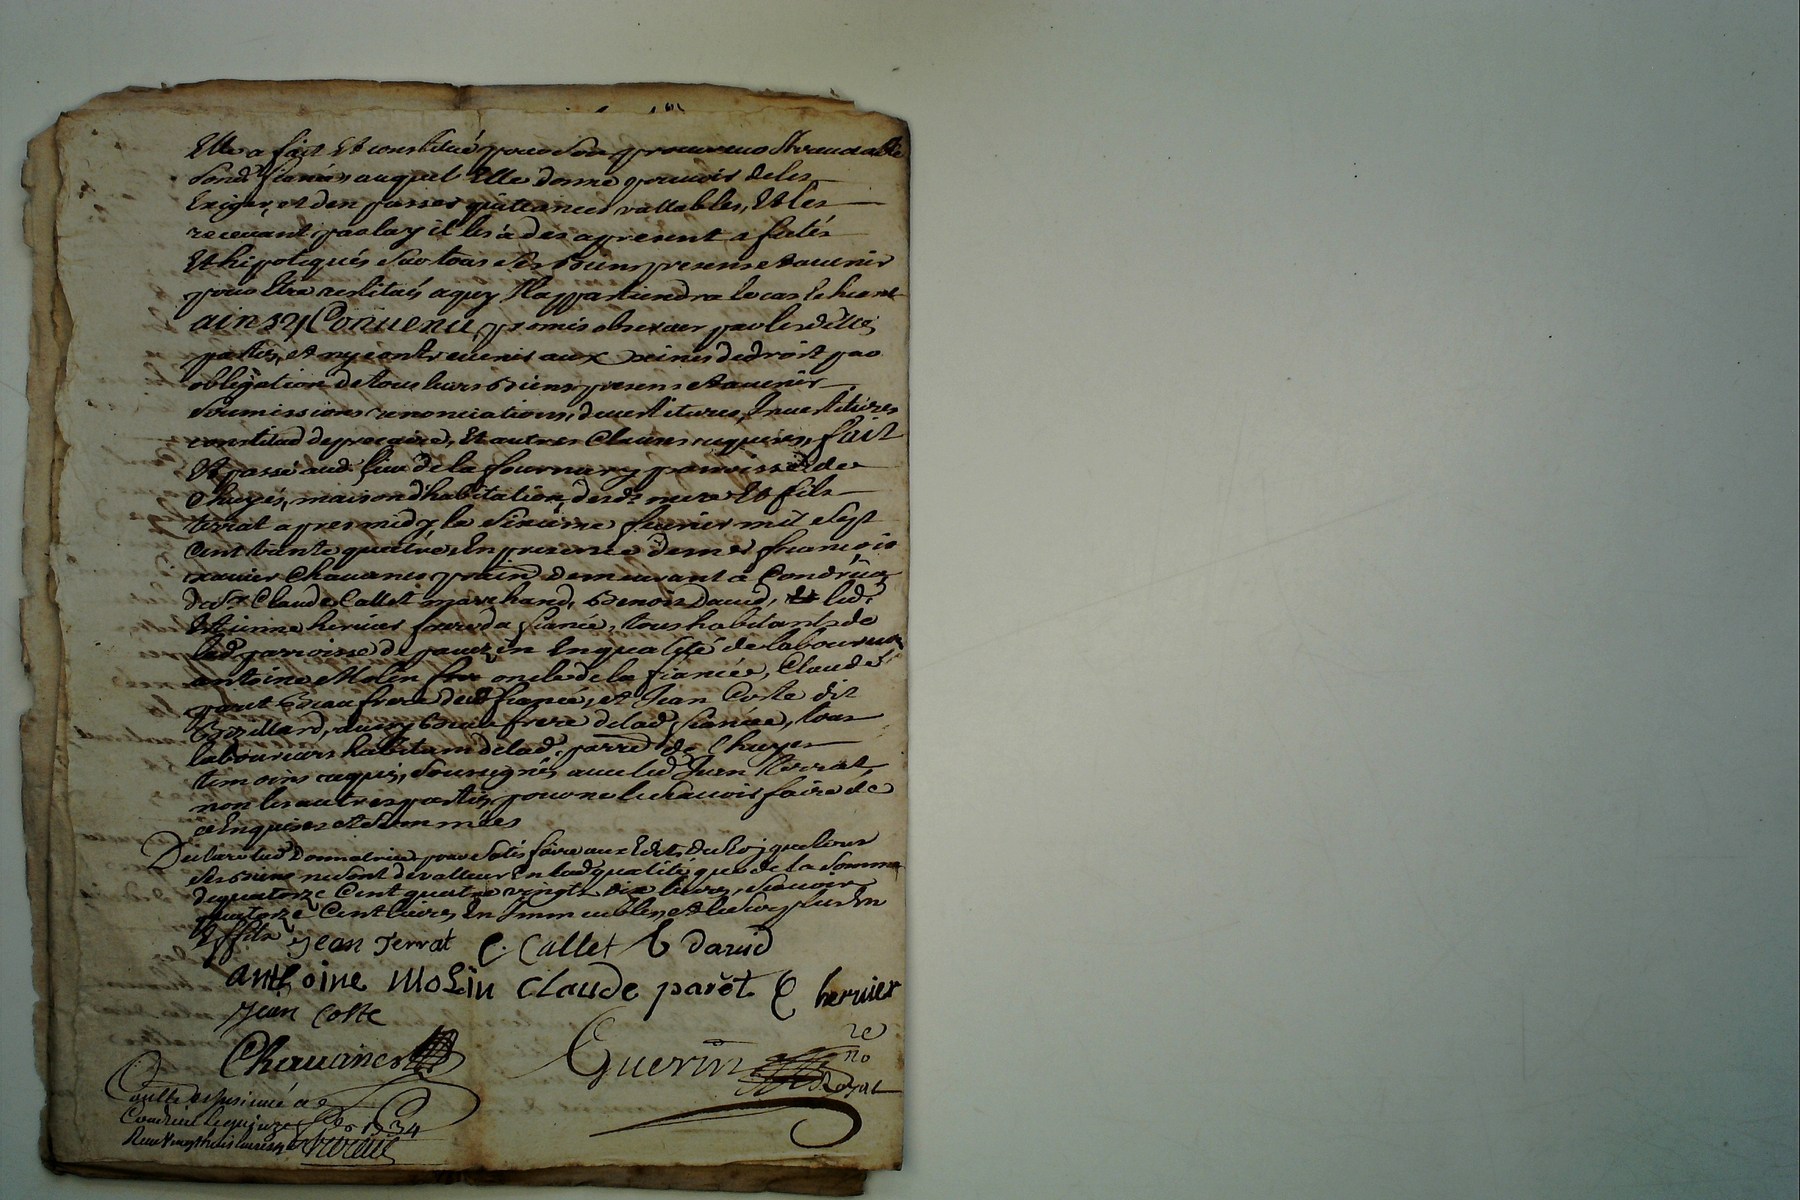 Elle a fait Et constitué pour Son procureur Irrevocable
Lond. fiancés auquel Elle donne pouvoir de les
Exiger, et d'en passer quittances vallables, Et les
recevant par luy il les à des apresent afectés
Et hipotequés sur tous Ses Biens presens et avenir
pour Etre restitués a quy Il appartiendra le cas Echeant
ainsy Convenu, promis observer par lesdittes
parties, et ny contrevenir aux peines de droit par
obligation de tous leurs Biens presens et avenir
Soumissions renonciations, devestitures, Investitures
constitud de precaire, Et autres Clauses requises, fait
Et passé aud. lieu de la fournary parroisse de
Chuyés, maison d'habitation, desd. mere Et fils
terrat apres midy le Sixieme fevrier mil Sept
Cent trante quatre En presence de me francois
xavier Chavanes praen demeurant a Condrieu
du Sr. Claude Callet marchand, Benoit David, led.
Etienne hervier frere de fiancée, tous habitants de
lad. parroisse de pavezin En qualité de laboureurs
antoine Molin oncle de la fiancée, Claude
paret Beau frere dud. fiancé, et Jean Coste dit
Goillard, aussy Beau frere de lad. fiancée, tous
laboureurs habitans de lad. parre. de Chuyes
temoins requis, Soussignés avec led. Jean Terrat,
non les autres parties pour ne le Scavoir faire de
ce Enquises et Sommées
Declare lad. Donnatrice pour Satisfaire aux Edits du Roy que tous
Ses Biens ne Sont de valleur En lad. qualité que de la Somme
de quatorze Cent quatre vingts dix livres, Scavoir
quatorze Cent livres En Immeubles, et le Surplus En
Effets
jean Terrat C. Callet B david
anthoine Molin Claude parêt E hervier
Jean Coste
Chavanes Guerin
no
re
Royal
Conttrolé et Insinué a
Condrieu le quinze fev. 1734
Reçu vingt huit livres